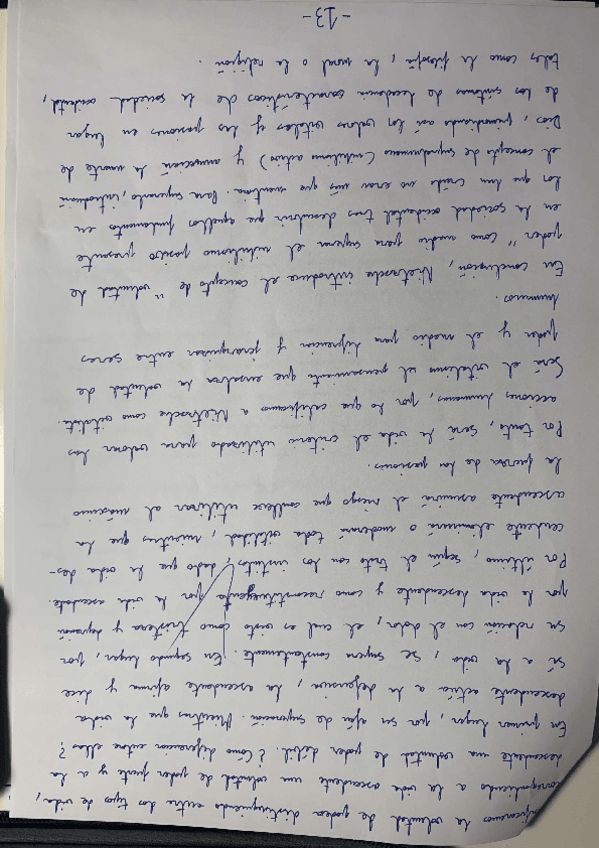 la voluntad de poder distinguiendo entre dos tipos de vida,
correspondiendo a la vida ascendente una voluntad de poder fuerte y a la
descendente una voluntad de poder débil. ¿Cómo diferencian entre ellas?
En primer lugar, por su afán de superación. Mientras que la vida
descendente actúa a la defensiva, la ascendente afirma y dice
sí a la vida, se supera constantemente. En segundo lugar, por
su relación con el dolor, el cual es visto como tristeza y depresión
por la vida descendente y como reconstituyente por la vida ascendente.
Por último, según el trato con los instintos, dado que la vida des-
cendente eliminará o moderará toda vitalidad, mientras que la
ascendente asumirá el riesgo que conlleve utilizar al máximo
la fuerza de las pasiones.
Por tanto, será la vida el criterio utilizado para valorar las
acciones humanas, por lo que calificamos a Nietzsche como vitalista.
Será el vitalismo el pensamiento que ensalza la voluntad de
poder y el medio para diferenciar y jerarquizar entre seres
humanos.
En conclusión, Nietzsche introduce el concepto de "voluntad de
poder" como medio para superar el nihilismo pasivo presente
en la sociedad occidental tras descubrir que aquellos fundamentos en
los que han creído no eran más que mentiras. Para superarlo, introducirá
el concepto de superhombre (nihilismo activo) y anunciará la muerte de
Dios, priorizando así los valores vitales y las pasiones en lugar
de los síntomas de decadencia característicos de la sociedad occidental,
tales como la filosofía, la moral o la religión.
-13-